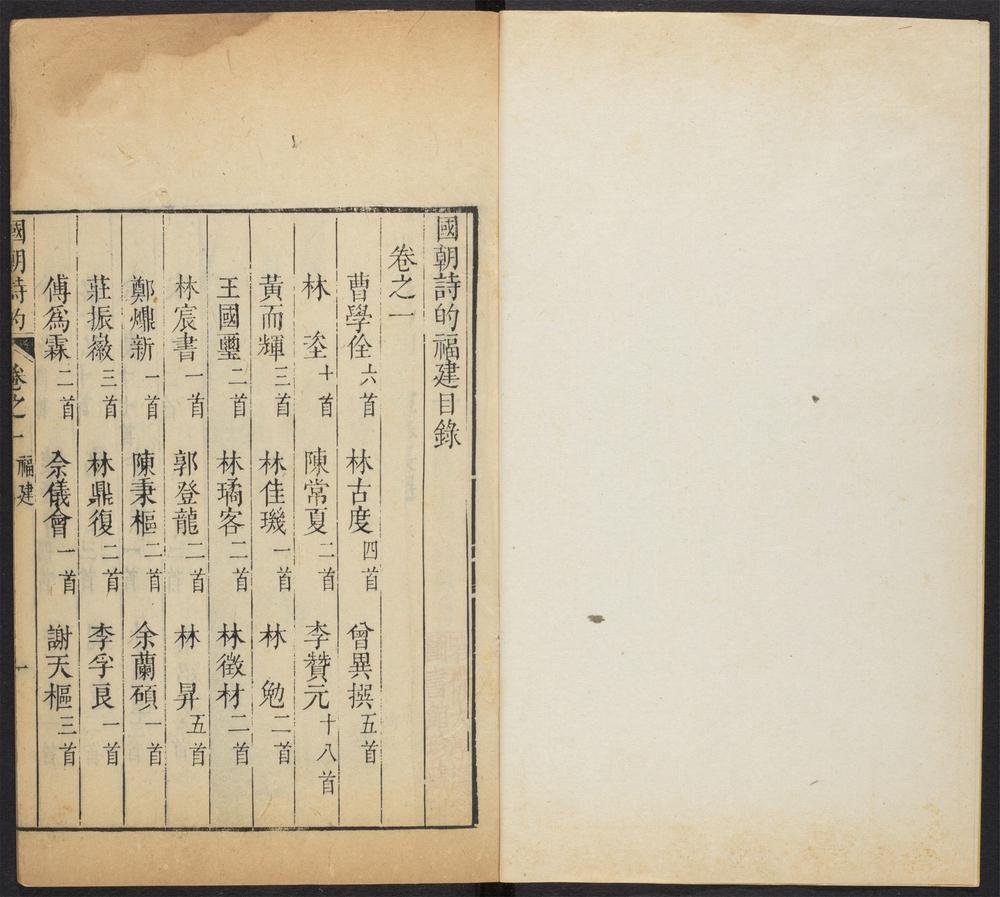 國朝詩的福建目錄
卷之一
曹學佺六首 林古度四首 曾異撰五首
林 垐十首 陳常夏二首 李贊元十八首
黃而輝三首 林佳璣一首 林 勉二首
王國璽二首 林璚客二首 林徵材二首
林宸書一首 郭登龍二首 林 昇五首
鄭㷍新一首 陳秉樞二首 余蘭碩一首
莊振 三首 林鼎復二首 李孚良一首
傅爲霖二首 余儀會一首 謝天樞三首
國朝詩的 卷之一 福建 一